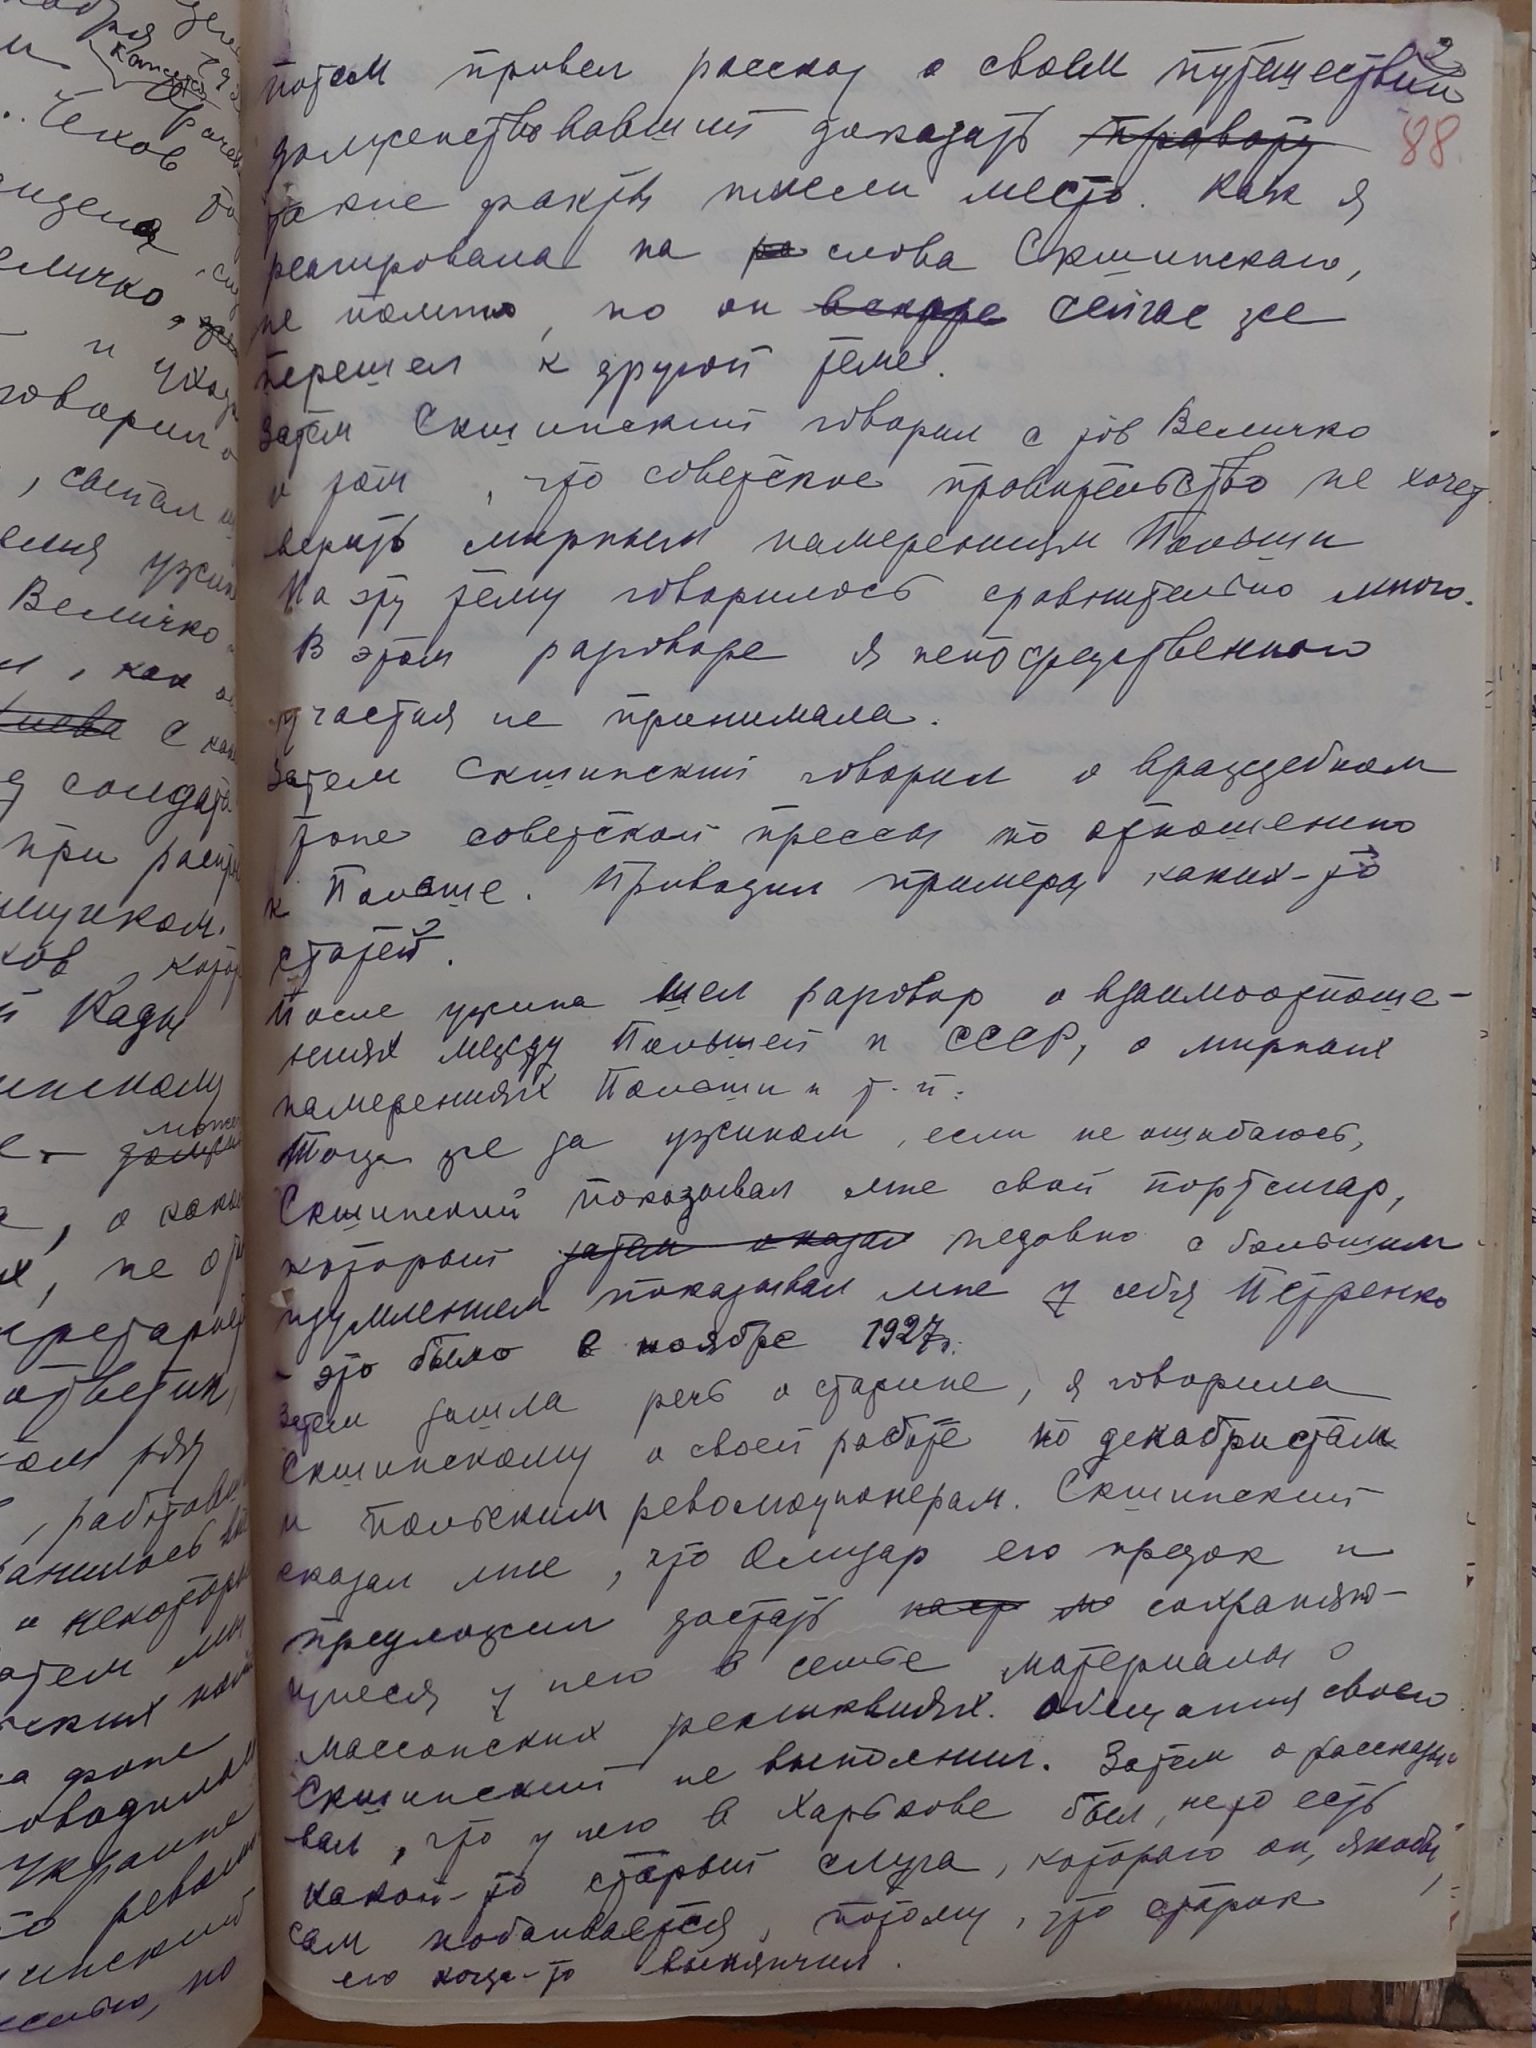 2
88.
потом привел рассказ о своем путешествии
долженствовавший доказать ~~правоту~~
такие факты имели место. Как я
реагировала на ~~ра~~ слова Скшинского,
не помню, но он ~~вскоре~~ сейчас же
перешел к другой теме.
Затем Скшинский говорил с тов Величко
о том, что советское правительство не хочет
верить мирным намерениям Польши
На эту тему говорилось сравнительно много.
В этом разговоре я непосредственного
участия не принимала.
Затем Скшинский говорил о враждебном
тоне советской прессы по отношению
к Польше. Приводил примеры каких-то
статей.
После ужина шел разговор о взаимоотноше-
ниях между Польшей и СССР, о мирных
намерениях Польши и т.п.
Тогда же за ужином, если не ошибаюсь,
Скшинский показывал мне свой портсигар,
который ~~затем сказал~~ недавно с большим
изумлением показывал мне у себя Петренко
- это было в ноябре 1927г.
Затем зашла речь о старине, я говорила
Скшинскому о своей работе по декабристам
и польским революционерам. Скшинский
сказал мне, что Олизар его предок и
предложил достать сохраняю-
щиеся у него в семье материалы о
массонских реликвиях. Обещания своего
Скшинский не выполнил. Затем о рассказы-
вал, что у него в Харькове был, не то есть
какой-то старый слуга, которого он, якобы,
сам побаивается, потому, что старик
его когда-то вынянчил.
Чехов
Величко
говорил
состал
Величко
, как
при
Рады
, о
, не
ответил,
, работав
о некотор